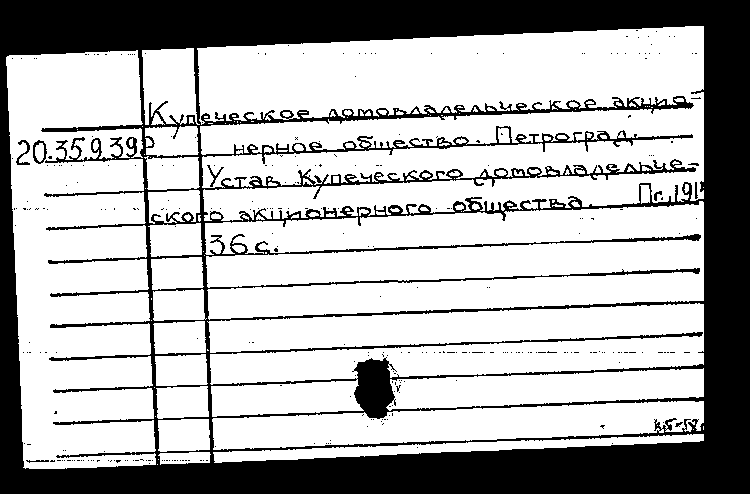 Купеческое домовладельческое акцио-
20.35.9.392 нерное общество. Петроград.
Устав Купеческого домовладельче-
ского акционерного общества. Пг., 191
36 с.